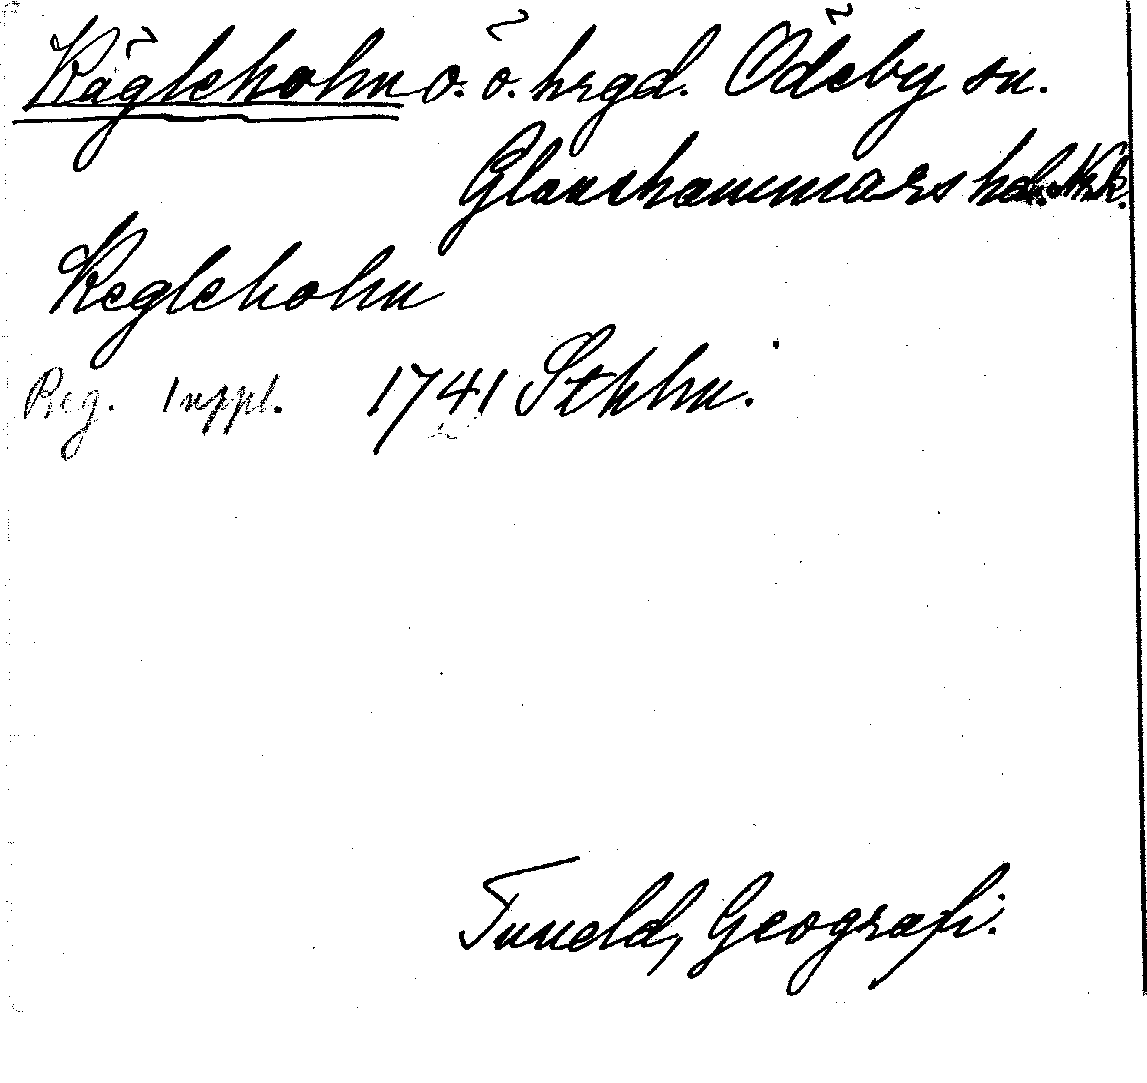 Kägleholm o. ö. hrgd. Ödeby sn.
Glanshammars hd. Nrk.
Kegleholm
Reg. 1 uppl. 1741 Sthlm.
Tuneld, Geografi.